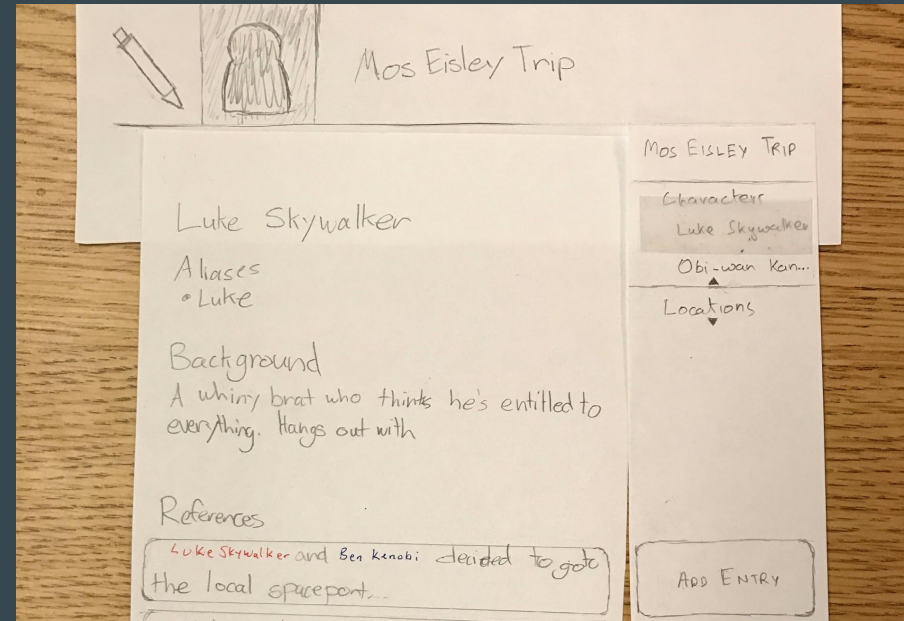 Mos Eisley Trip
Luke Skywalker
Aliases
• Luke
Background
A whiny brat who thinks he's entitled to
everything. Hangs out with
References
Luke Skywalker and Ben Kenobi decided to goto
the local spaceport...
MOS EISLEY TRIP
Characters
Luke Skywalker
Obi-wan Kan...
Locations
ADD ENTRY